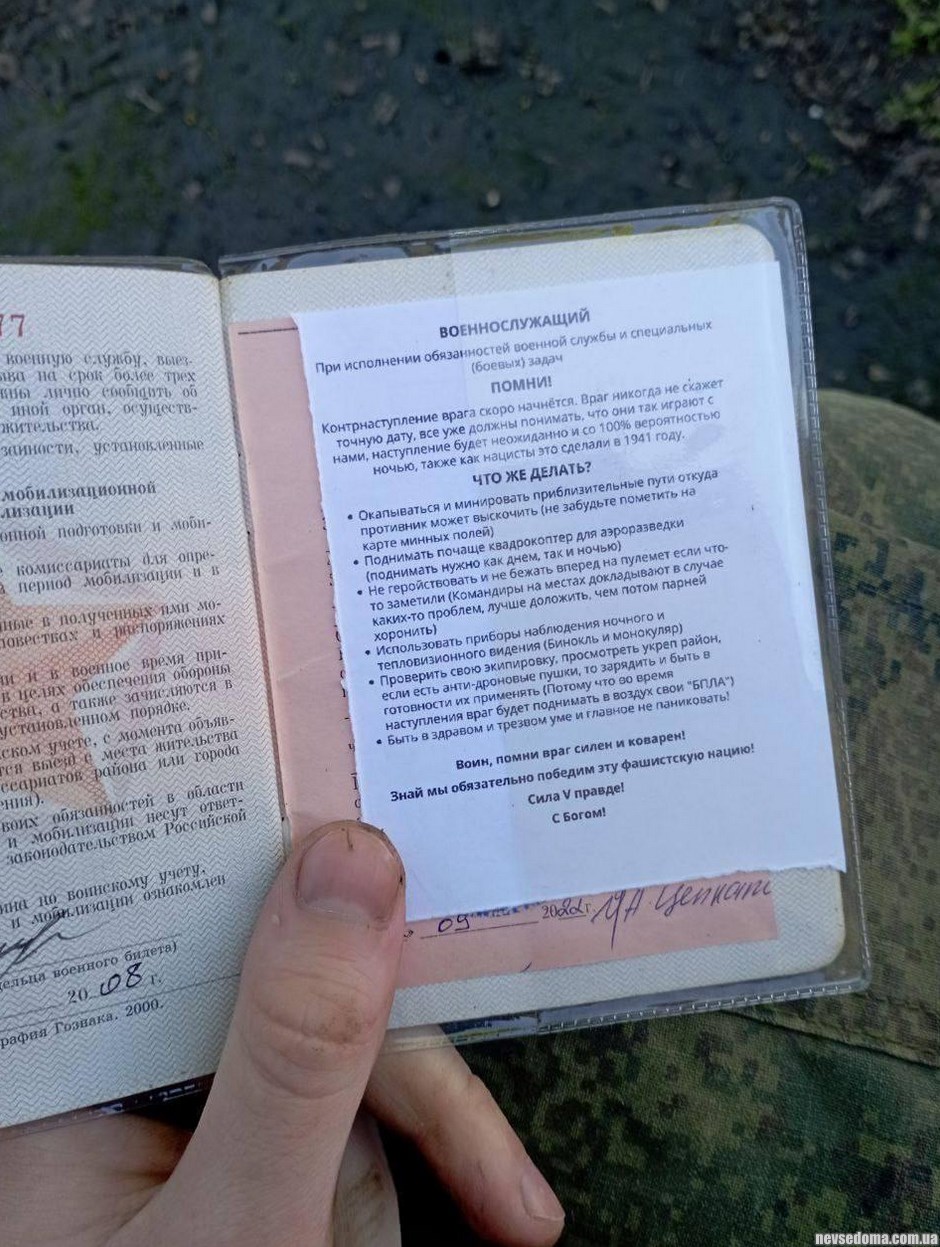 77
военную службу, выез-
на срок более трех
лично сообщить об
иной орган, осуществ-
жительства.
установленные
мобилизационной
подготовки и моби-
комиссариаты для опре-
период мобилизации и в
в полученных ими мо-
повестках и распоряжениях
и в военное время при-
в целях обеспечения обороны
а также зачисляются в
установленном порядке.
учете, с момента объяв-
выезд с места жительства
района или города
обязанностей в области
и мобилизации несут ответ-
законодательством Российской
по воинскому учету,
и мобилизации ознакомлен
военного билета)
20 08 г.
Гознака. 2000.
ВОЕННОСЛУЖАЩИЙ
При исполнении обязанностей военной службы и специальных
(боевых) задач
ПОМНИ!
Контрнаступление врага скоро начнётся. Враг никогда не скажет
точную дату, все уже должны понимать, что они так играют с
нами, наступление будет неожиданно и со 100% вероятностью
ночью, также как нацисты это сделали в 1941 году.
ЧТО ЖЕ ДЕЛАТЬ?
• Окапываться и минировать приблизительные пути откуда
противник может выскочить (не забудьте пометить на
карте минных полей)
• Поднимать почаще квадрокоптер для аэроразведки
(поднимать нужно как днем, так и ночью)
• Не геройствовать и не бежать вперед на пулемет если что-
то заметили (Командиры на местах докладывают в случае
каких-то проблем, лучше доложить, чем потом парней
хоронить)
• Использовать приборы наблюдения ночного и
тепловизионного видения (Бинокль и монокуляр)
• Проверить свою экипировку, просмотреть укреп район,
если есть анти-дроновые пушки, то зарядить и быть в
готовности их применять (Потому что во время
наступления враг будет поднимать в воздух свои "БПЛА")
• Быть в здравом и трезвом уме и главное не паниковать!
Воин, помни враг силен и коварен!
Знай мы обязательно победим эту фашистскую нацию!
Сила V правде!
С Богом!
09 2022 г.
nevsedoma.com.ua